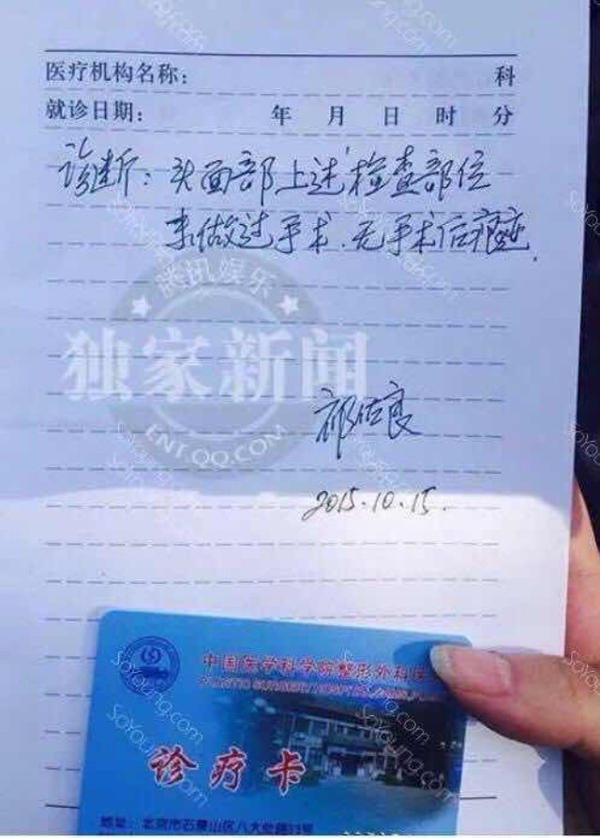 医疗机构名称: 科
就诊日期: 年 月 日 时 分
诊断: 头面部上述检查部位
未做过手术.无手术后痕迹.
腾讯娱乐
独家新闻
ENT.QQ.COM
祁佐良
2015.10.15.
中国医学科学院整形外科医
PLASTIC SURGERY HOSPITAL
诊疗卡
地址: 北京市石景山区八大处路33号
SoYoung.com